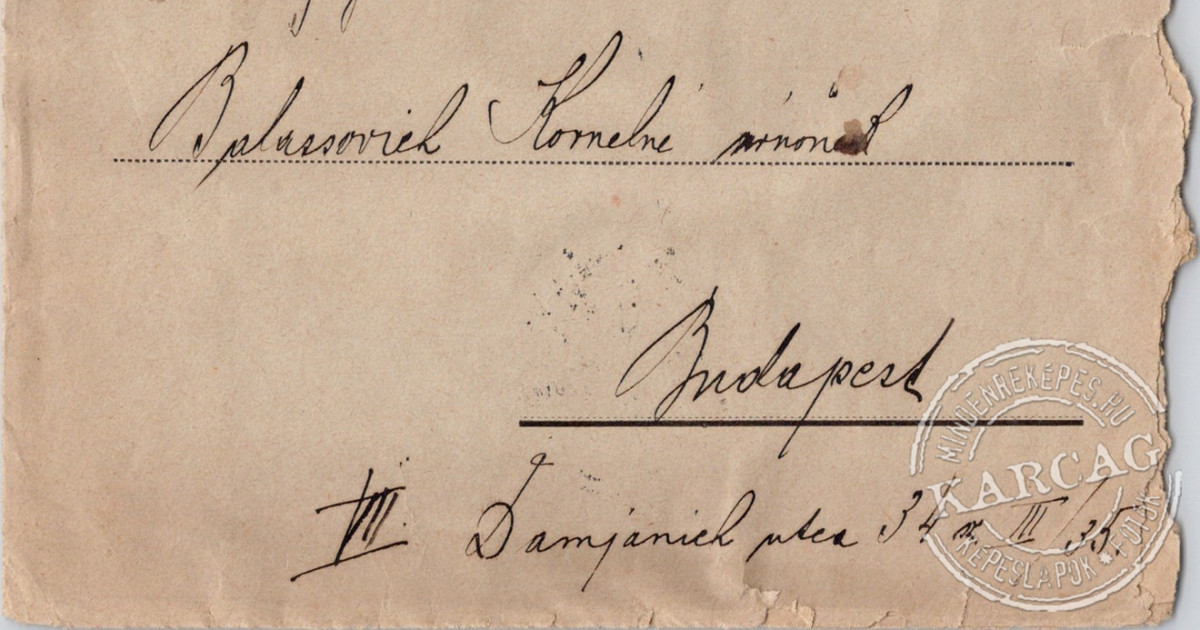 Balassovich Kornelné úrnőnek
Budapest
VII. Damjanich utca 34 sz. III/35.
MINDENREKÉPES.HU
KARCAG
KÉPESLAPOK * FOTÓK